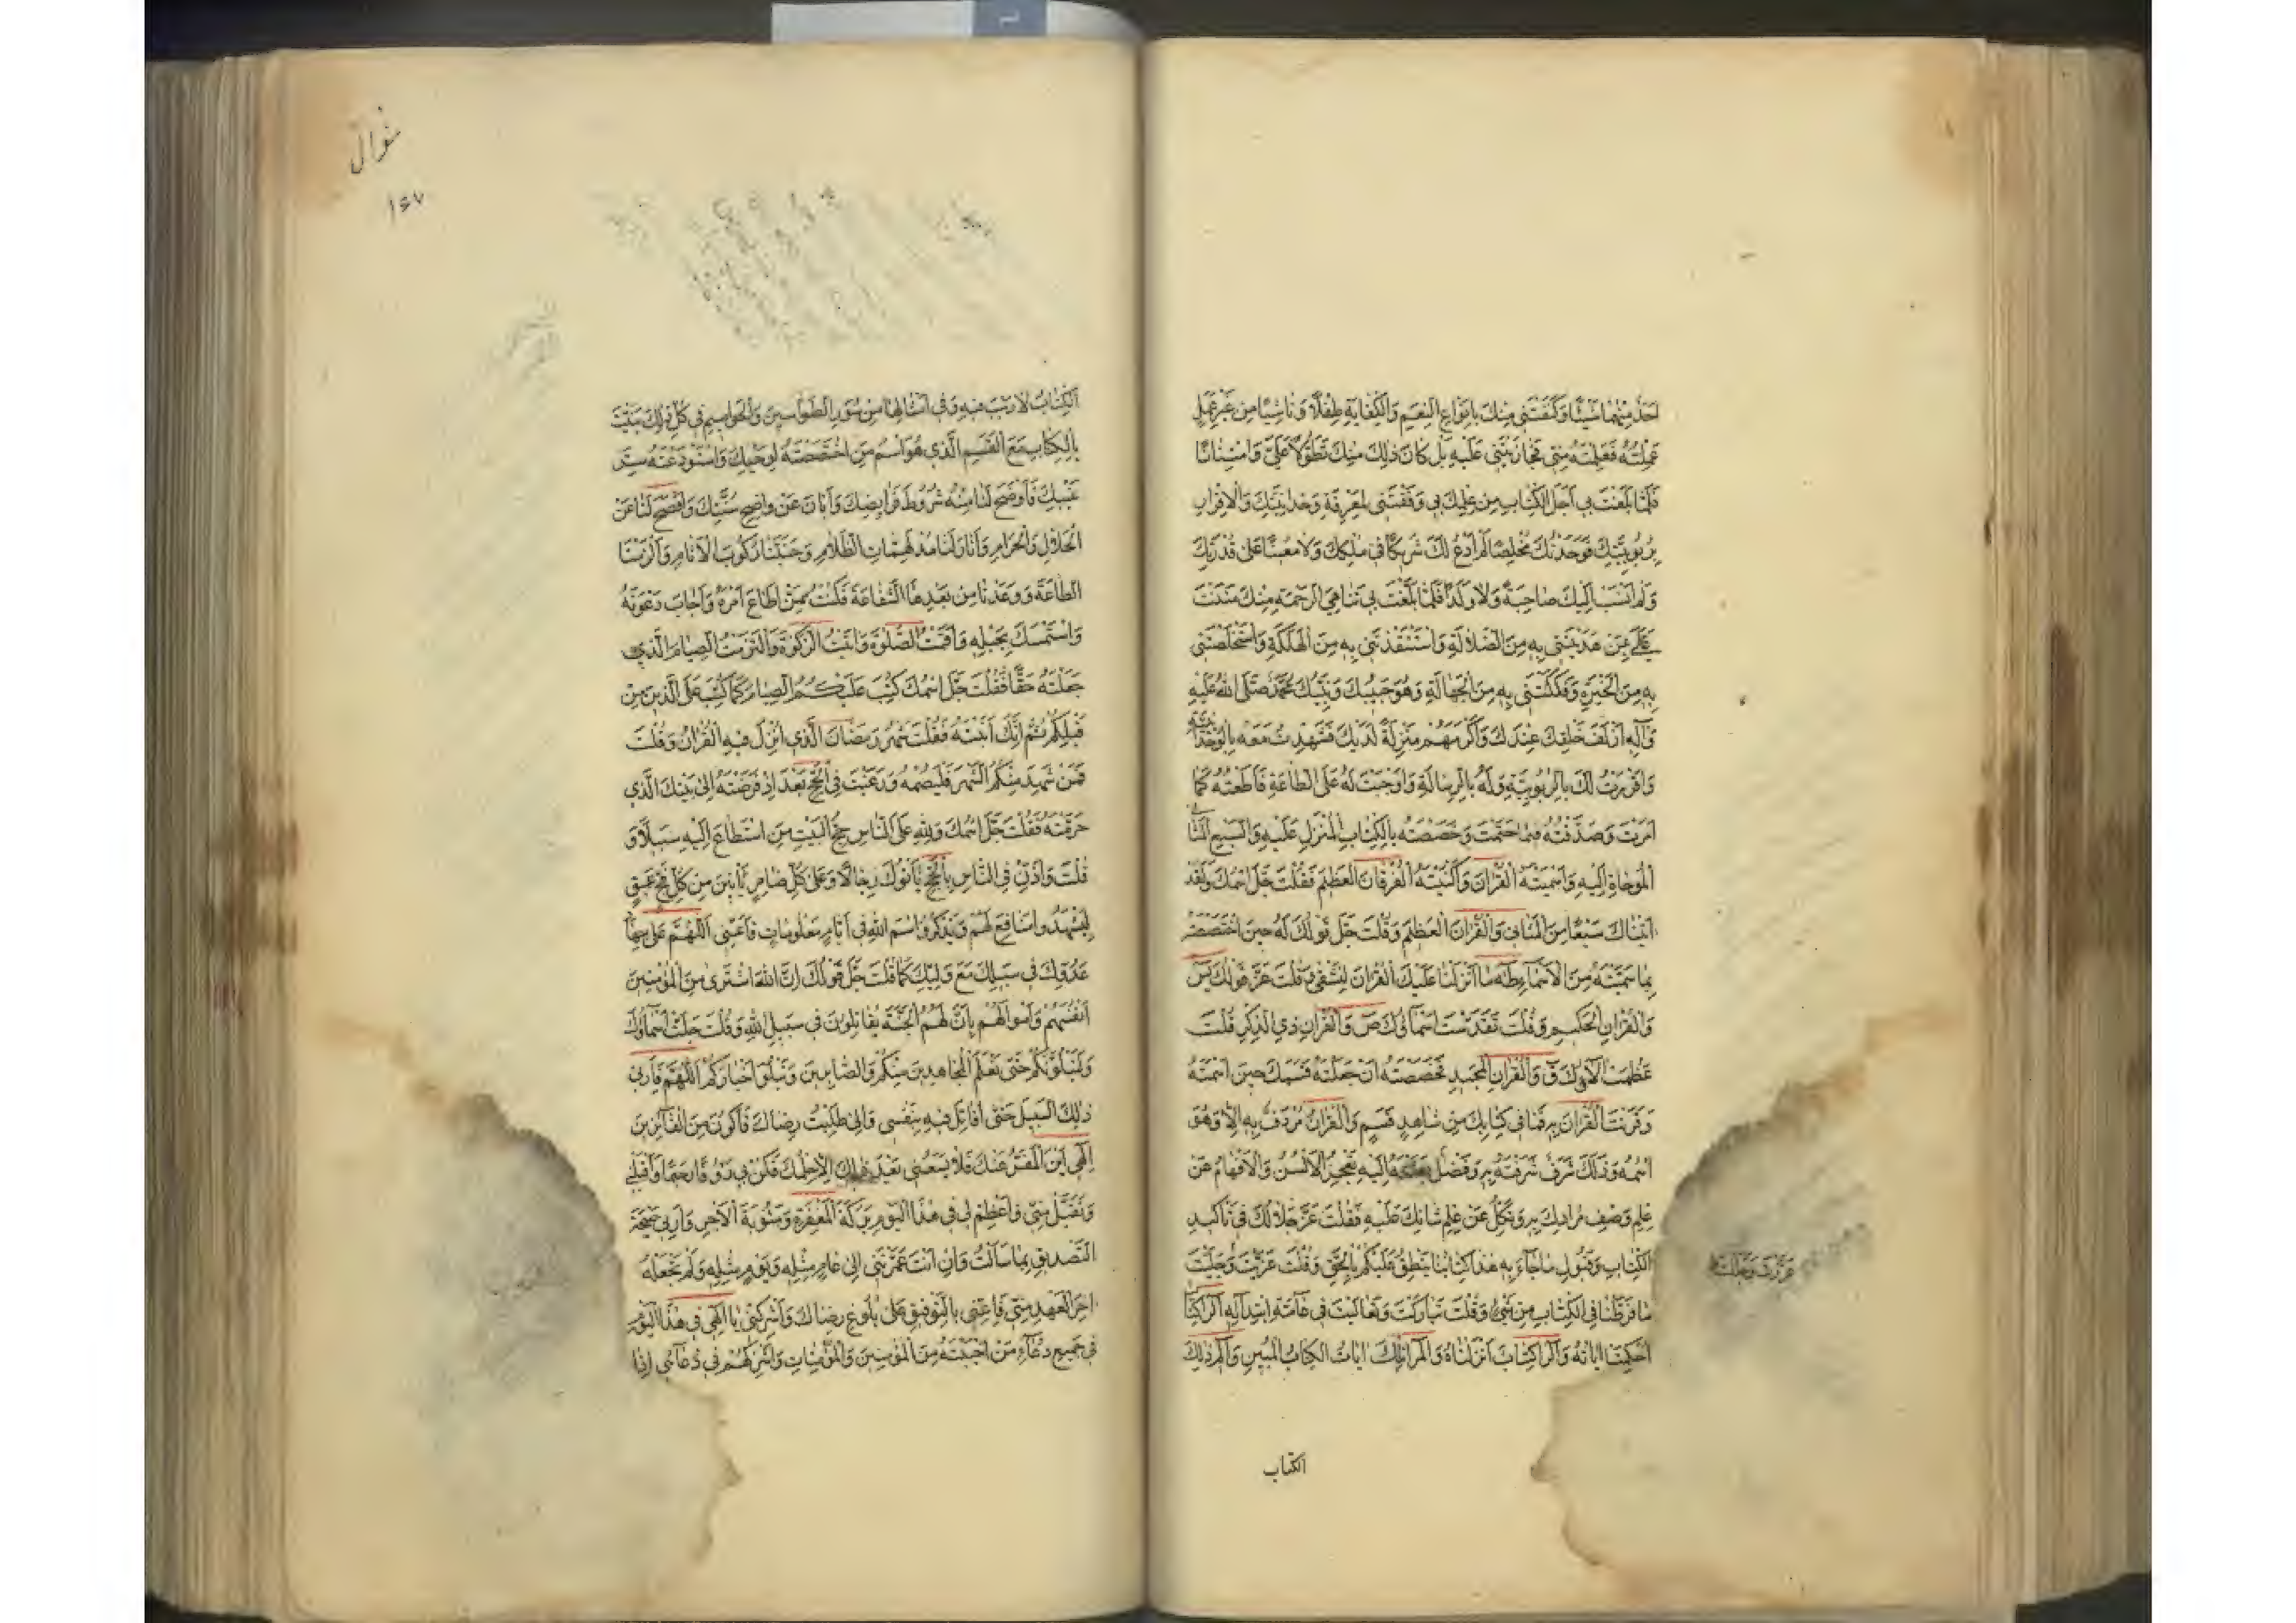 احد منهما شيئا وكنفتني منك بانواع النعم والكفاية طفلا وناشيا من غير عمل
عملته فعلمته مني فجازيتني عليه بل كان ذلك منك تطولا علي وامتنانا
فلما بلغت بي اجل الكتاب من علمك بي وفقتني لمعرفة وحدانيتك والاقرار
بربوبيتك فوحدتك مخلصا لم ادع لك شريكا في ملكك ولا معينا على قدرتك
ولم انسب اليك صاحبة ولا ولدا فلما بلغت بي تناهي الرحمة منك مننت
علي بمن هديتني به من الضلالة واستنقذتني به من الهلكة واستخلصتني
به من الحيرة وفككتني به من الجهالة وهو حبيبك ونبيك محمد صلى الله عليه
وآله ازلف خلقك عندك واكرمهم منزلة لديك فشهدت معه بالوحدانية
واقررت لك بالربوبية وله بالرسالة واوجبت له علي الطاعة فاطعته كما
امرت وصدقته فيما حتمت وخصصته بالكتاب المنزل عليه والسبع المثاني
الموحاة اليه واسميته القران واكنيته الفرقان العظيم فقلت جل اسمك ولقد
اتيناك سبعا من المثاني والقران العظيم وقلت جل قولك له حين اختصصته
بما سميته من الاسماء طه ما انزلنا عليك القران لتشقى وقلت عز قولك يس
والقران الحكيم وقلت تقدست اسماؤك ص والقران ذي الذكر وقلت
عظمت الاؤك ق والقران المجيد فخصصته ان جعلته قسمك حين اسميته
وقرنت القران به فما في كتابك من شاهد قسم والقران مردف به الا وهو
اسمه وذلك شرف شرفته به وفضل بعثته اليه تعجز الالسن والافهام عن
علم وصف مرادك به وتكل عن علم ثنائك عليه فقلت عز جلالك في تاكيد
الكتاب وقبول ما جاء به هذا كتابنا ينطق عليكم بالحق وقلت عززت وجللت
عززت وجللت
ما فرطنا في الكتاب من شيء وقلت تباركت وتعاليت في عامة ابتدائه الر كتاب
احكمت اياته والر كتاب انزلناه والمر تلك ايات الكتاب المبين والم ذلك
الكتاب
شوال
١٤٧
الكتاب لا ريب فيه وفي امثالها من سور الطواسين والحواميم في كل ذلك بينت
بالكتاب مع القسم الذي هو اسم من اختصصته لوحيك واستودعته سر
غيبك فاوضح لنا منه شروط فرايضك وابان عن واضح سنتك وافصح لنا عن
الحلال والحرام وانار لنا مدلهمات الظلام وجنبنا ركوب الاثام والزمنا
الطاعة ووعدنا من بعدها الشفاعة فكنت ممن اطاع امره واجاب دعوته
واستمسك بحبله واقمت الصلوة واتيت الزكوة والتزمت الصيام الذي
جعلته حقا فقلت جل اسمك كتب عليكم الصيام كما كتب على الذين من
قبلكم ثم انك ابنته فقلت شهر رمضان الذي انزل فيه القران وقلت
فمن شهد منكم الشهر فليصمه ورغبت في الحج بعد اذ فرضته الى بيتك الذي
حرمته فقلت جل اسمك ولله على الناس حج البيت من استطاع اليه سبيلا و
قلت واذن في الناس بالحج ياتوك رجالا وعلى كل ضامر ياتين من كل فج عميق
ليشهدوا منافع لهم ويذكروا اسم الله في ايام معلومات فاعني اللهم على جهاد
عدوك في سبيلك مع وليك كما قلت جل قولك ان الله اشترى من المؤمنين
انفسهم واموالهم بان لهم الجنة يقاتلون في سبيل الله وقلت جلت اسماؤك
ولنبلونكم حتى نعلم المجاهدين منكم والصابرين ونبلو اخباركم اللهم فارني
ذلك السبيل حتى اقاتل فيه بنفسي ومالي طلبت رضاك فاكون من الفائزين
الهي اين المفر عنك فلا يسعني بعد ذلك الا حلمك فكن بي رؤفا رحيما واقبلني
وتقبل مني واعظم لي في هذا اليوم بركة المغفرة ومثوبة الاجر وارني صحة
التصديق بما سالت وان انت عمرتني الى عام مثله ويوم مثله ولم تجعله
اخر العهد مني فاعني بالتوفيق على بلوغ رضاك واشركني يا الهي في هذا اليوم
في جميع دعاء من اجبته من المؤمنين والمؤمنات واشركهم في دعائي اذا